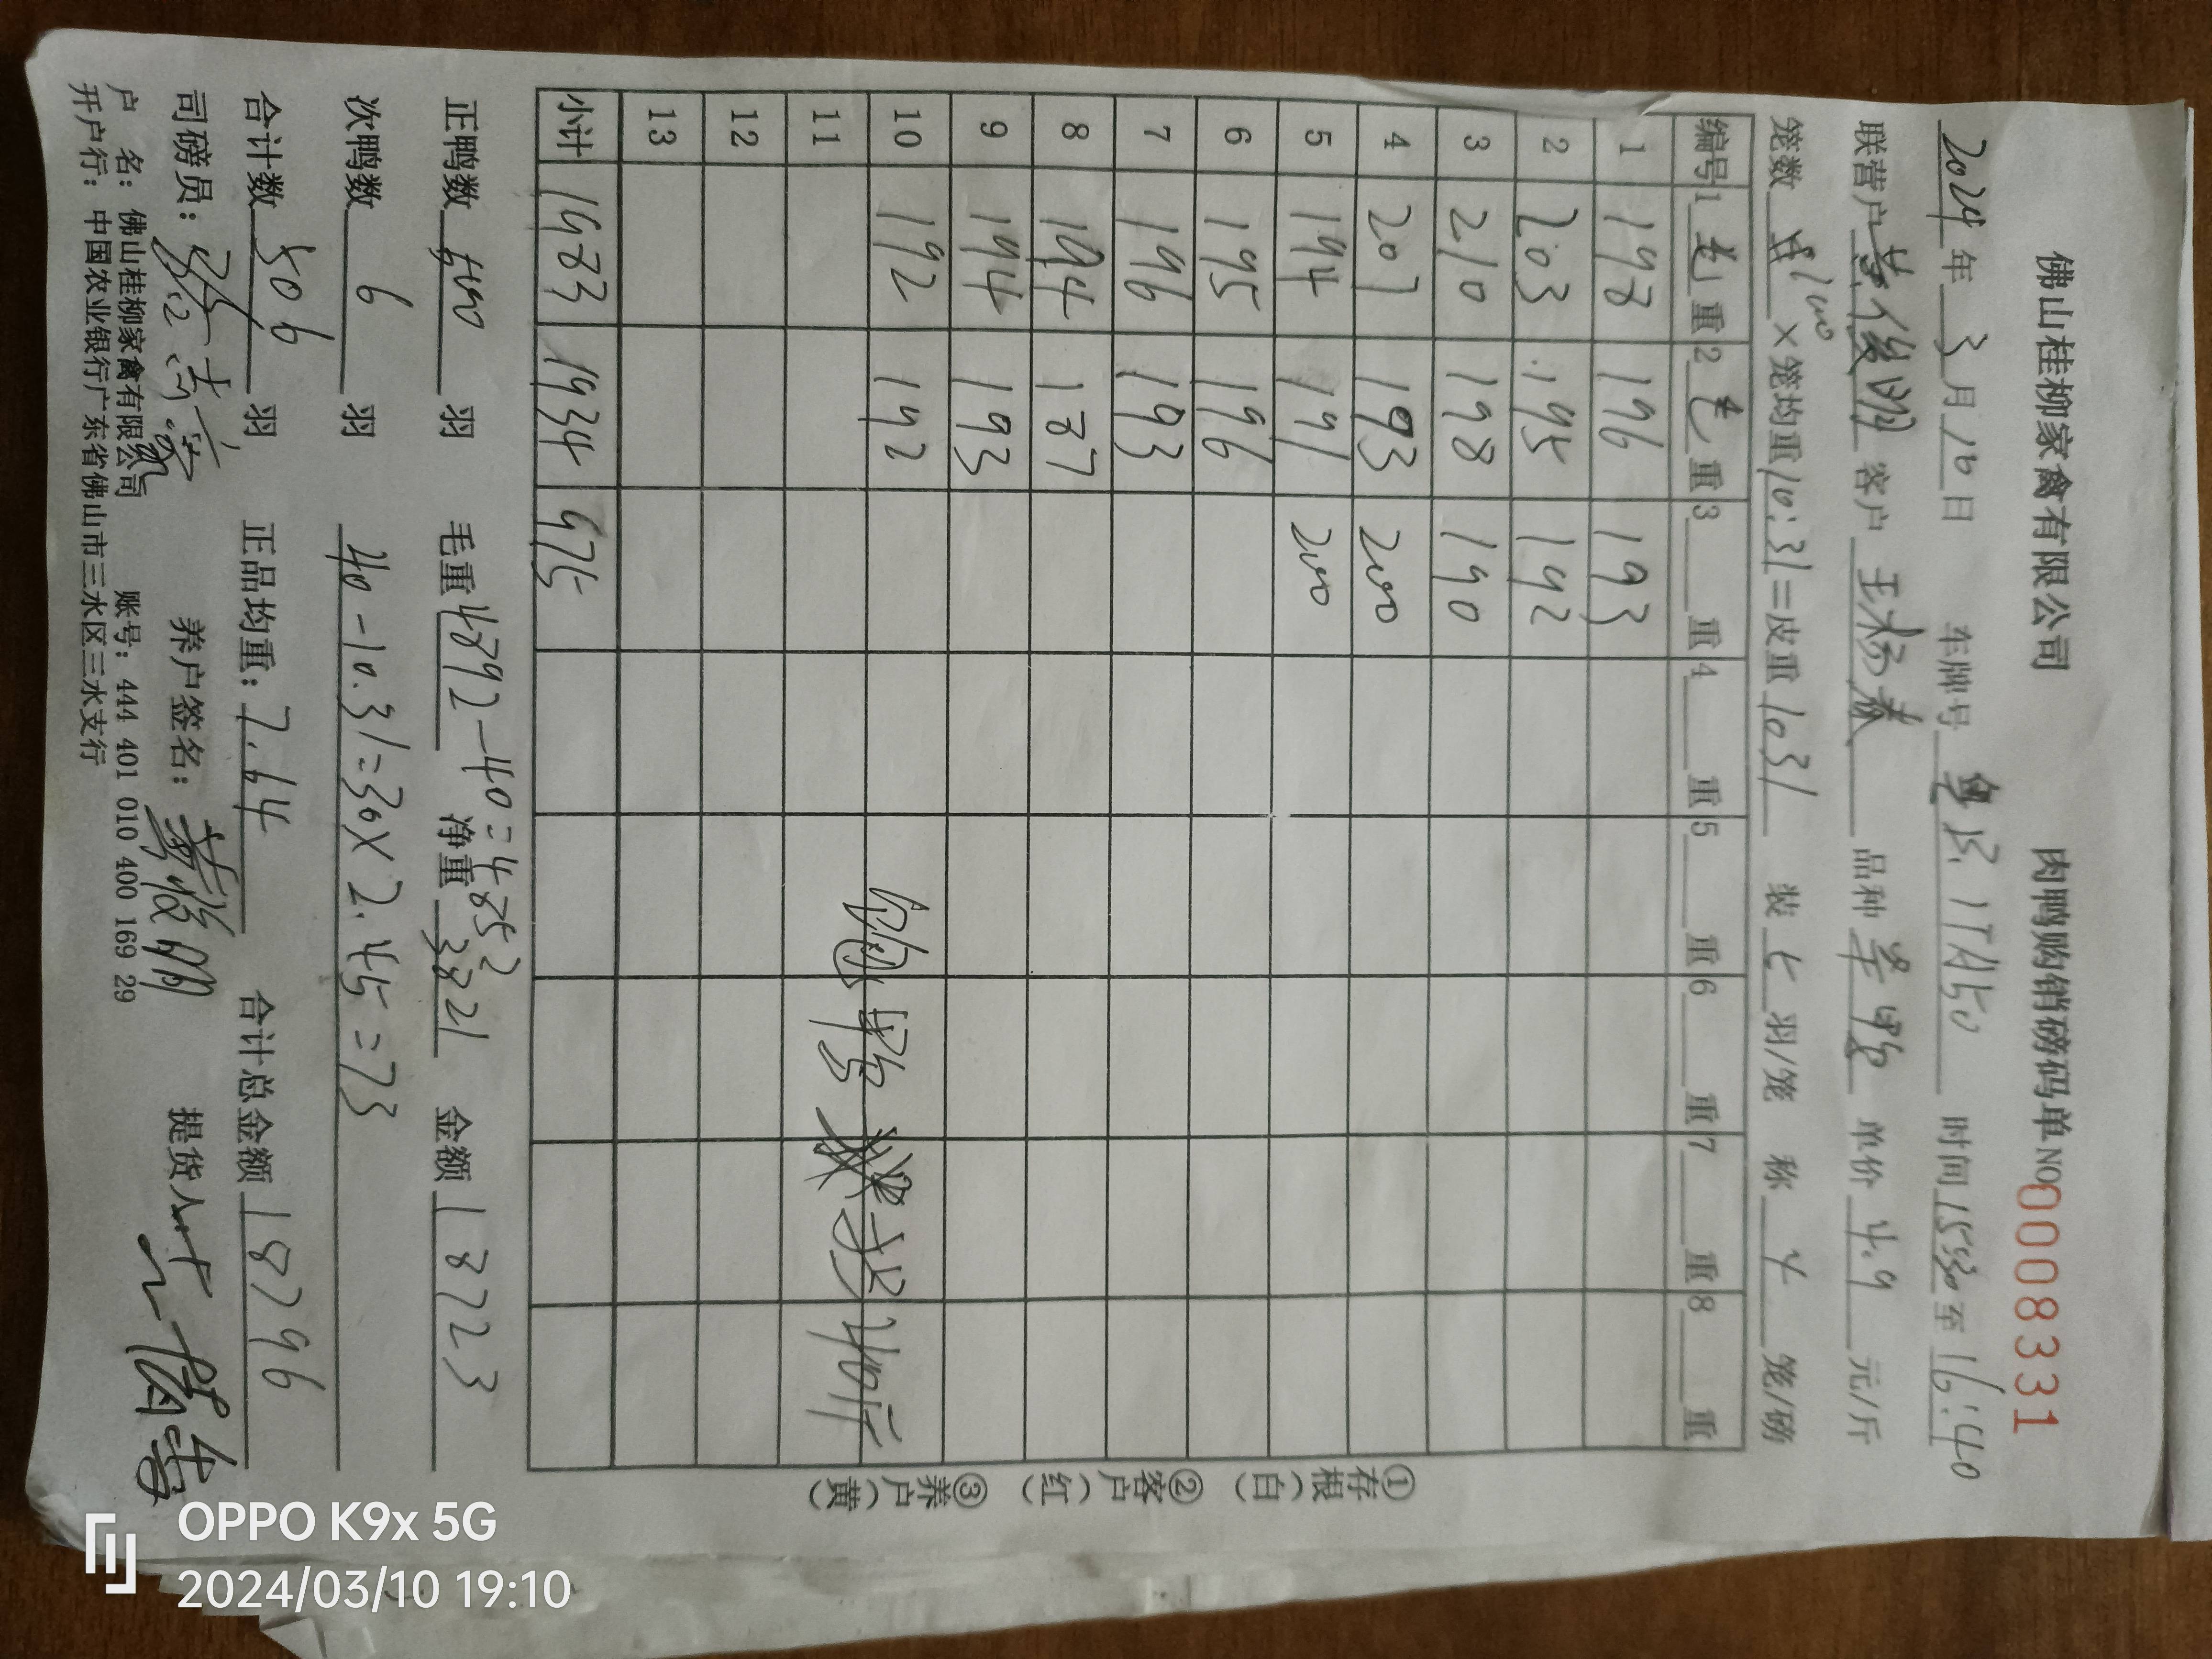 佛山桂柳家禽有限公司 肉鸭购销磅码单 NO 0008331
2024年 3 月 10 日 车牌号 粤 1TA50 时间 15 至 16:40
联营户 黄俊明 客户 王杨春 品种 单价 4.9 元/斤
笼数 100 ×笼均重 10.31 =皮重 1031 装 七 羽/笼 称 4 笼/磅
编号 1 毛 重 2 毛 重 3 重 4 重 5 重 6 重 7 重 8 重
1 198 196 193
2 203 195 192
3 210 198 190
4 207 193 200
5 194 191 200
6 195 196
7 196 193
8 194 187
9 194 193
10 192 192
11
12
13
小计 1983 1934 975
40斤
正鸭数 500 羽 毛重 4892-40=4852 净重 3821 金额 18723
次鸭数 6 羽 40-10.31=30×2.45=73
合计数 506 羽 正品均重: 7.64 合计总金额 18796
司磅员: 养户签名: 黄俊明 提货人:
户 名: 佛山桂柳家禽有限公司 账号: 444 401 010 400 169 29
开户行: 中国农业银行广东省佛山市三水区三水支行
①存根(白) ②客户(红) ③养户(黄)
OPPO K9x 5G
2024/03/10 19:10